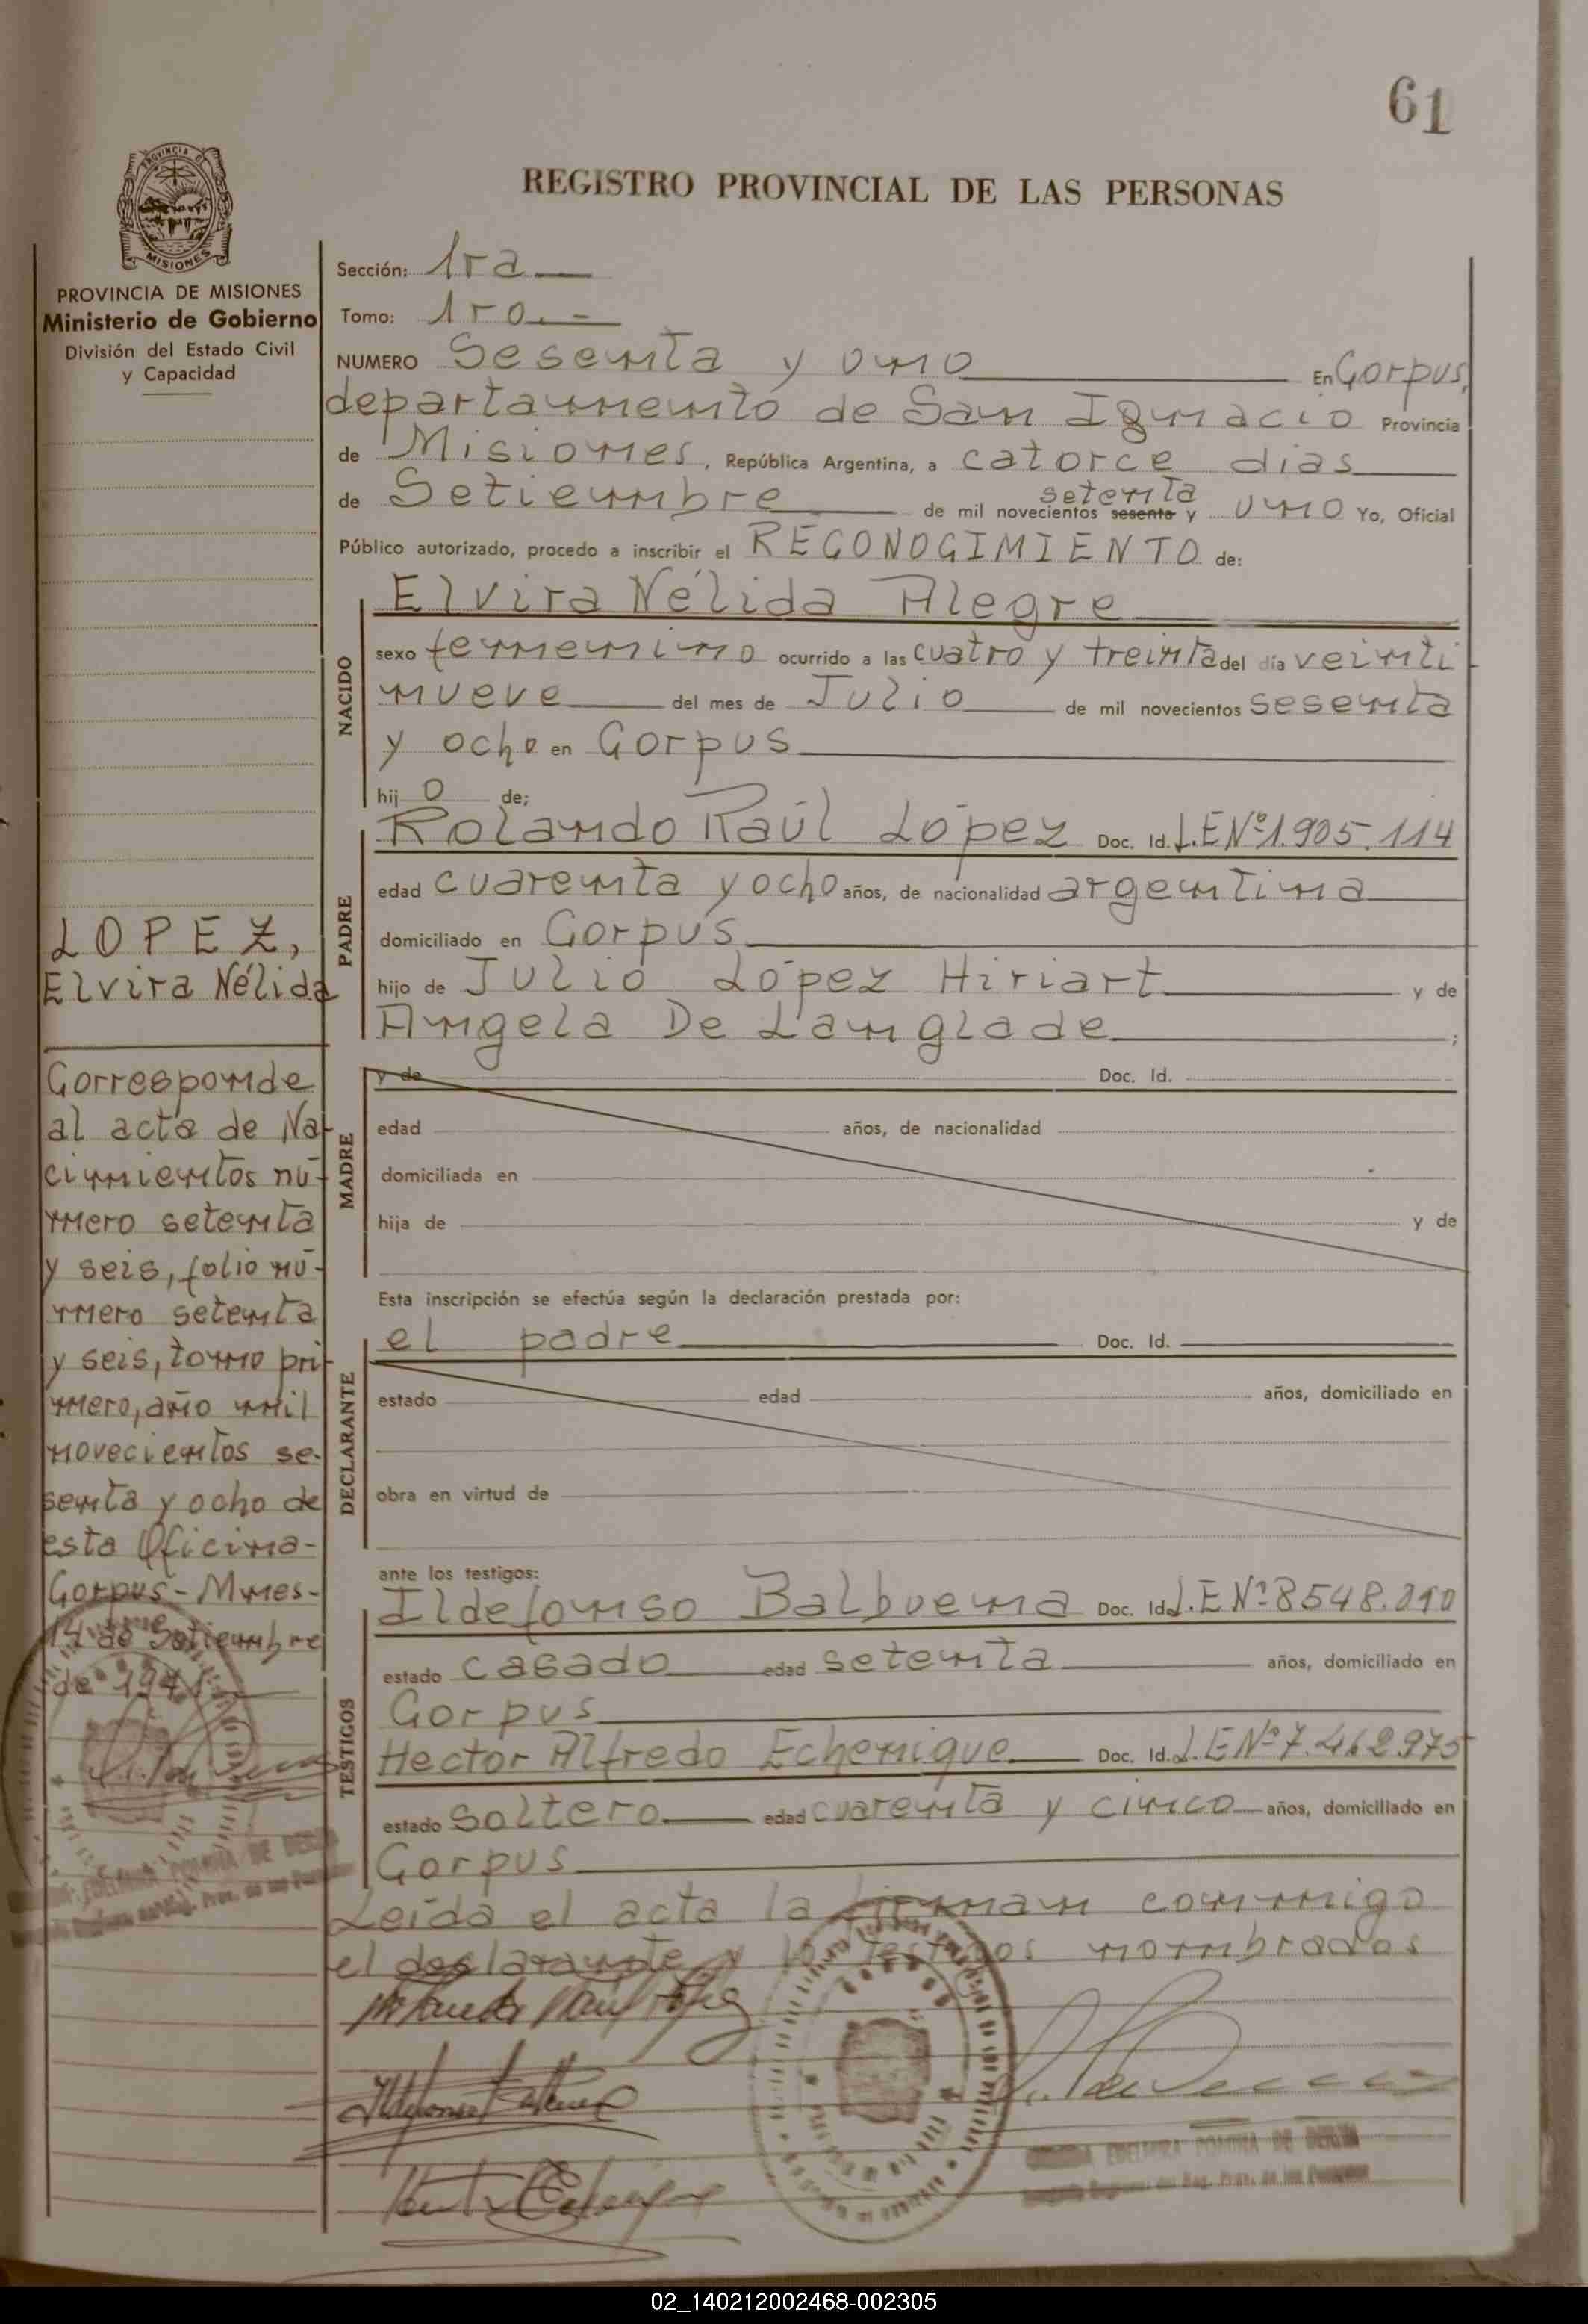 61
PROVINCIA DE
MISIONES
REGISTRO PROVINCIAL DE LAS PERSONAS
PROVINCIA DE MISIONES
Ministerio de Gobierno
División del Estado Civil
y Capacidad
Sección: 1ra
Tomo: 1ro.-
NUMERO Sesenta y uno En Corpus,
departamento de San Ignacio Provincia
de Misiones, República Argentina, a catorce dias
setenta
de Setiembre de mil novecientos sesenta y uno Yo, Oficial
Público autorizado, procedo a inscribir el RECONOCIMIENTO de:
NACIDO
Elvira Nélida Alegre
sexo femenino ocurrido a las cuatro y treinta del día veinti
nueve del mes de Julio de mil novecientos sesenta
y ocho en Corpus
hij o de;
PADRE
Rolando Raúl López Doc. Id. L.E Nº 1.905.114
edad cuarenta y ocho años, de nacionalidad argentina
domiciliado en Corpus
hijo de Julio López Hiriart y de
Angela De Langlade ;
MADRE
y de Doc. Id.
edad años, de nacionalidad
domiciliada en
hija de y de
Esta inscripción se efectúa según la declaración prestada por:
DECLARANTE
el padre Doc. Id.
estado edad años, domiciliado en
obra en virtud de
ante los testigos:
TESTIGOS
Ildefonso Balbuena Doc. Id. L.E Nº 8548.010
estado casado edad setenta años, domiciliado en
Corpus
Hector Alfredo Echenique Doc. Id. L.E Nº 7.462.975
estado soltero edad cuarenta y cinco años, domiciliado en
Corpus
Leída el acta la firman conmigo
el declarante y los testigos nombrados
LOPEZ,
Elvira Nélida
Corresponde
al acta de Na-
cimientos nú-
mero setenta
y seis, folio nú-
mero setenta
y seis, tomo pri-
mero, año mil
novecientos se-
senta y ocho de
esta Oficina-
Corpus-Mnes-
14 de Setiembre
de 1971
EDELMIRA POLONIA DE
02_140212002468-002305